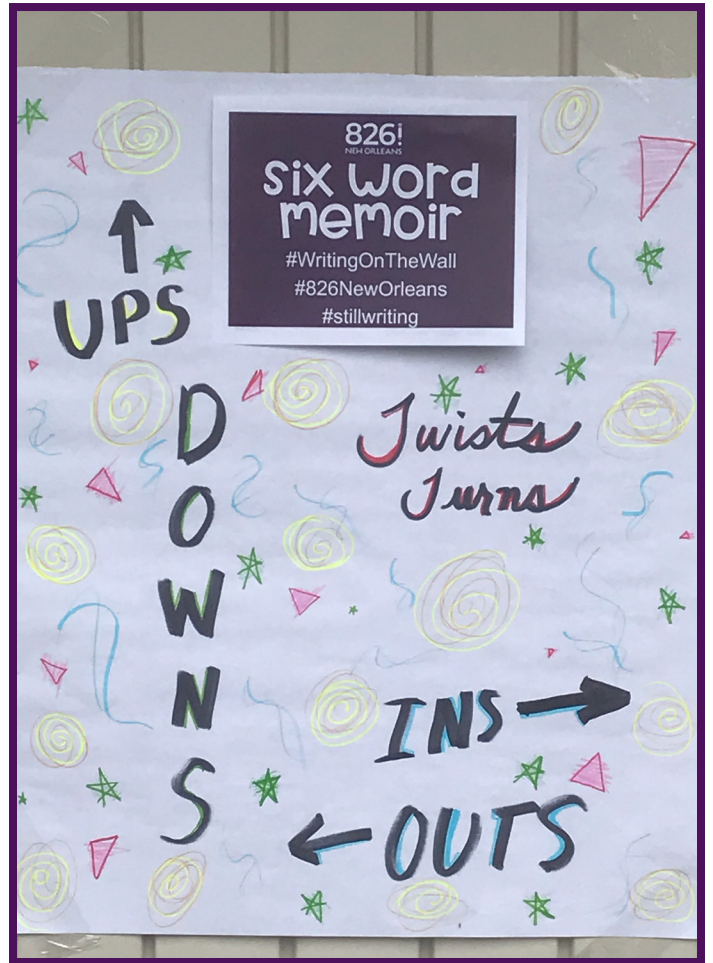 826!
NEW ORLEANS
six word
memoir
#WritingOnTheWall
#826NewOrleans
#stillwriting
UPS
DOWNS
Twists
Turns
INS
OUTS